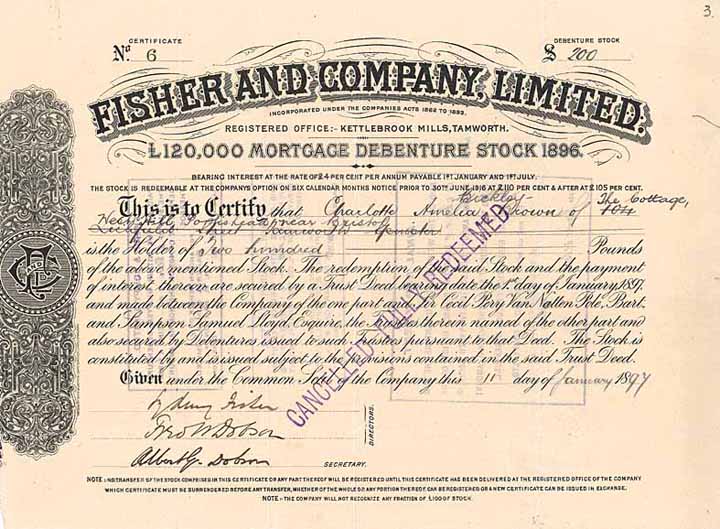 3.
CERTIFICATE
No. 6
DEBENTURE STOCK
£ 200
FISHER AND COMPANY, LIMITED.
INCORPORATED UNDER THE COMPANIES ACTS 1862 TO 1893.
REGISTERED OFFICE:- KETTLEBROOK MILLS, TAMWORTH.
£120,000 MORTGAGE DEBENTURE STOCK 1896.
BEARING INTEREST AT THE RATE OF £4 PER CENT PER ANNUM PAYABLE 1ST JANUARY AND 1ST JULY.
THE STOCK IS REDEEMABLE AT THE COMPANY'S OPTION ON SIX CALENDAR MONTHS NOTICE PRIOR TO 30TH JUNE 1916 AT £110 PER CENT & AFTER AT £105 PER CENT.
Bickley The Cottage,
This is to Certify that Charlotte Amelia Brown of 104
near Bristol
Lichfield Street Tamworth Spinster
is the Holder of Two hundred Pounds
of the above mentioned Stock. The redemption of the said Stock and the payment
of interest thereon are secured by a Trust Deed bearing date the 1st day of January 1897,
and made between the Company of the one part and Sir Cecil Pery Van Notten Pole, Bart.
and Sampson Samuel Lloyd, Esquire, the Trustees therein named of the other part and
also secured by Debentures issued to such Trustees pursuant to that Deed. The Stock is
constituted by and is issued subject to the provisions contained in the said Trust Deed.
Given under the Common Seal of the Company this 11 day of January 1897
CANCELLED FULLY REDEEMED
Sydney Fisher
Fred W Dobson
DIRECTORS.
Albert G. Dobson
SECRETARY.
NOTE :- NO TRANSFER OF THE STOCK COMPRISED IN THIS CERTIFICATE OR ANY PART THEREOF WILL BE REGISTERED UNTIL THIS CERTIFICATE HAS BEEN DELIVERED AT THE REGISTERED OFFICE OF THE COMPANY
WHICH CERTIFICATE MUST BE SURRENDERED BEFORE ANY TRANSFER, WHETHER OF THE WHOLE OR ANY PORTION THEREOF CAN BE REGISTERED OR A NEW CERTIFICATE CAN BE ISSUED IN EXCHANGE.
NOTE :- THE COMPANY WILL NOT RECOGNIZE ANY FRACTION OF £100 OF STOCK.